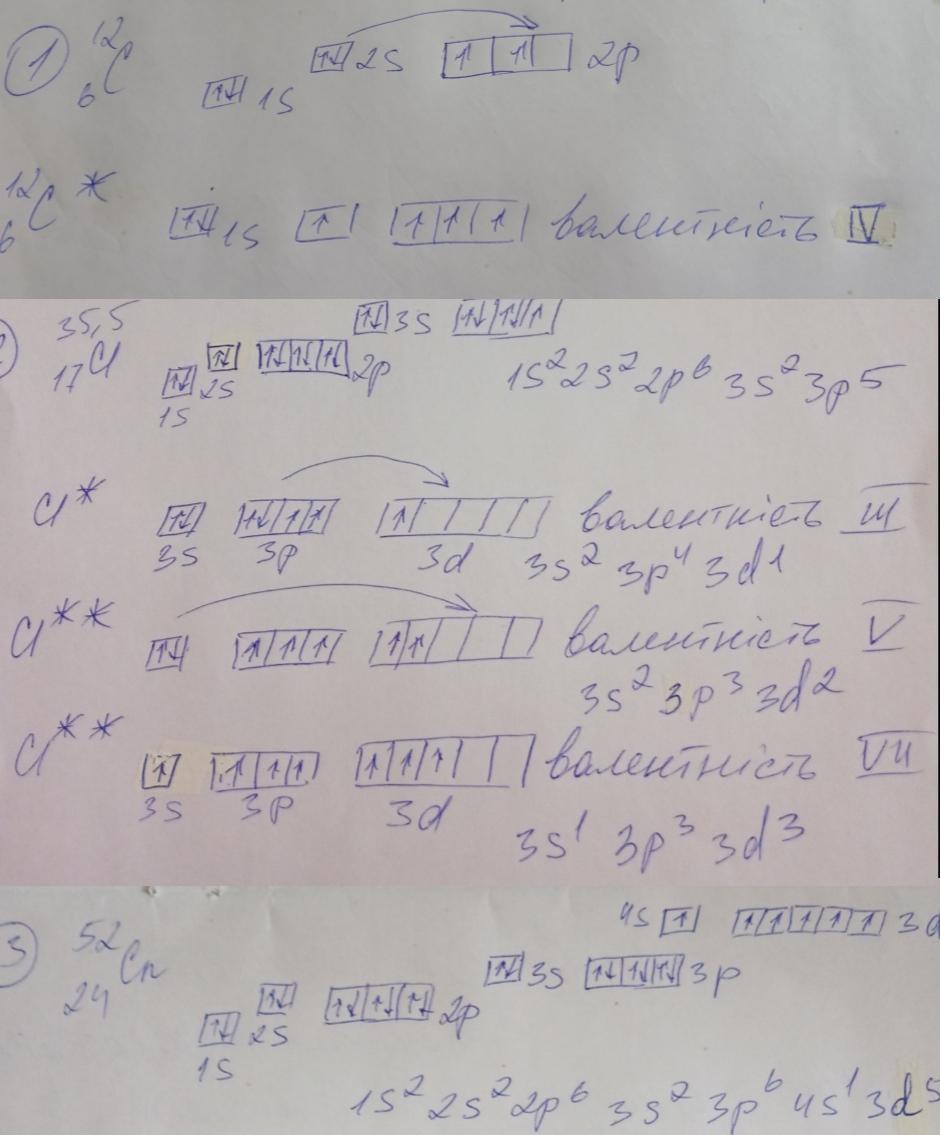 1 ¹²₆C [↑↓] 1s [↑↓] 2s [↑|↑| ] 2p
¹²₆C* [↑↓] 1s [↑] [↑|↑|↑] валентність IV
35,5 17 Cl [↑↓] 1s [↑↓] 2s [↑↓|↑↓|↑↓] 2p [↑↓] 3s [↑↓|↑↓|↑]
1s² 2s² 2p⁶ 3s² 3p⁵
Cl* [↑↓] 3s [↑↓|↑|↑] 3p [↑| | | | ] 3d валентність III
3s² 3p⁴ 3d1
Cl** [↑↓] [↑|↑|↑] [↑|↑| | | ] валентність V
3s² 3p³ 3d²
Cl** [↑] 3s [↑|↑|↑] 3p [↑|↑|↑| | ] 3d валентність VII
3s¹ 3p³ 3d³
4s [↑] [↑|↑|↑|↑|↑] 3d
3 ⁵²₂₄Cr [↑↓] 1s [↑↓] 2s [↑↓|↑↓|↑↓] 2p [↑↓] 3s [↑↓|↑↓|↑↓] 3p
1s² 2s² 2p⁶ 3s² 3p⁶ 4s¹ 3d⁵